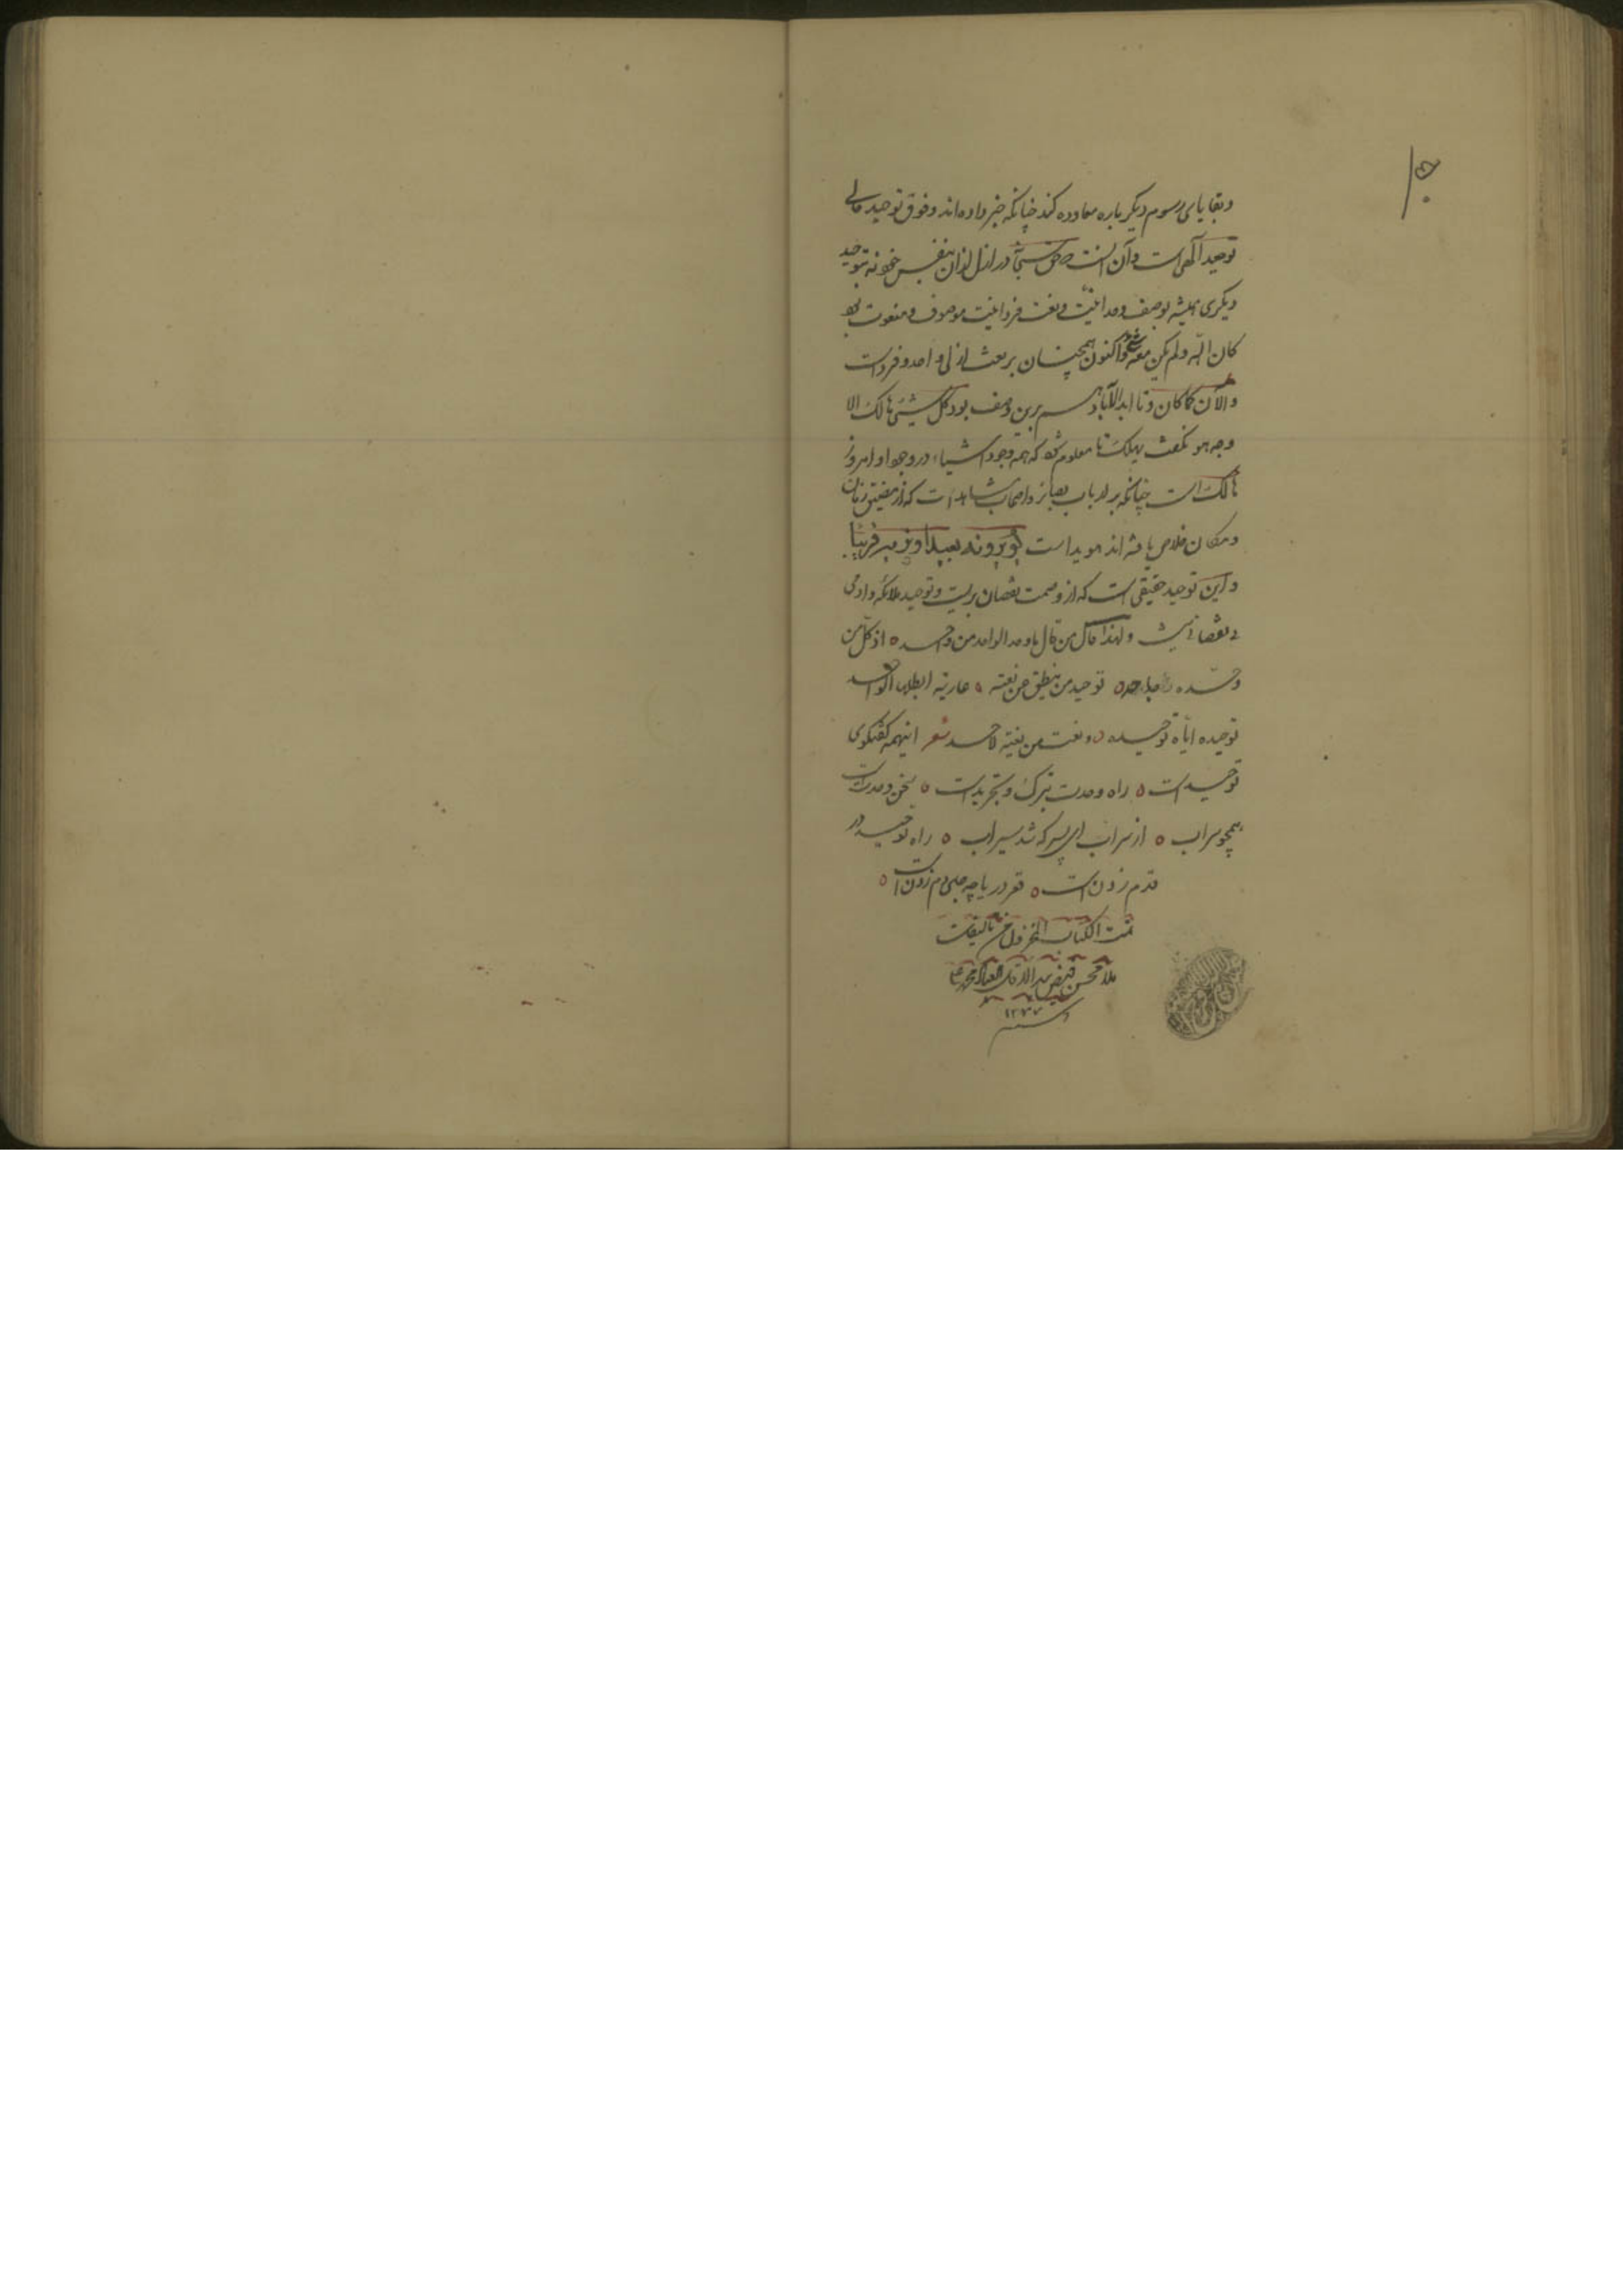 وبقایای رسوم دیگر باره معاوده کند چنانکه خبر داده‌اند وفوق توحید حالی
توحید الهی است وآن انست که حق سبحانه در ازل ازال بنفس خود نه بتوحید
دیگری همیشه بوصف وحدانیت ونعت فردانیت موصوف ومنعوت بود
کان الله ولم یکن معه شی واکنون همچنان بر نعت ازلی واحد وفرد است
والآن کما کان وتا ابد الآباد هم برین وصف بود کل شیئ هالک الا
وجهه نگفت یهلک تا معلوم شود که همه وجود اشیاء در وجود او امروز
هالک است چنانکه بر ارباب بصایر واصحاب مشاهدات که از مضیق زمان
ومکان خلاص یافته اند هویداست یرونه بعیدا ونریه قریبا
واین توحید حقیقی است که از وصمت نقصان بریست وتوحید ملائکه وادمی
نقصانیست ولهذا قال من قال ما وحد الواحد من واحد ٥ اذ کل من
وحده جاحد ٥ توحید من ینطق عن نعته ٥ عاریة ابطلها الواحد
توحیده ایاه توحیده ٥ ونعت من ینعته لاحد شعر اینهمه گفتگوی
توحید است ٥ راه وحدت بترک وتجرید است ٥ سخن وحدت است
همچو سراب ٥ از سراب ای پسر که شد سیراب ٥ راه توحید در
قدم زدن است ٥ قعر دریا چه جای دم زدن است ٥
تمت الکتاب من تالیفات
ملا محسن فیض
١٢٧٧